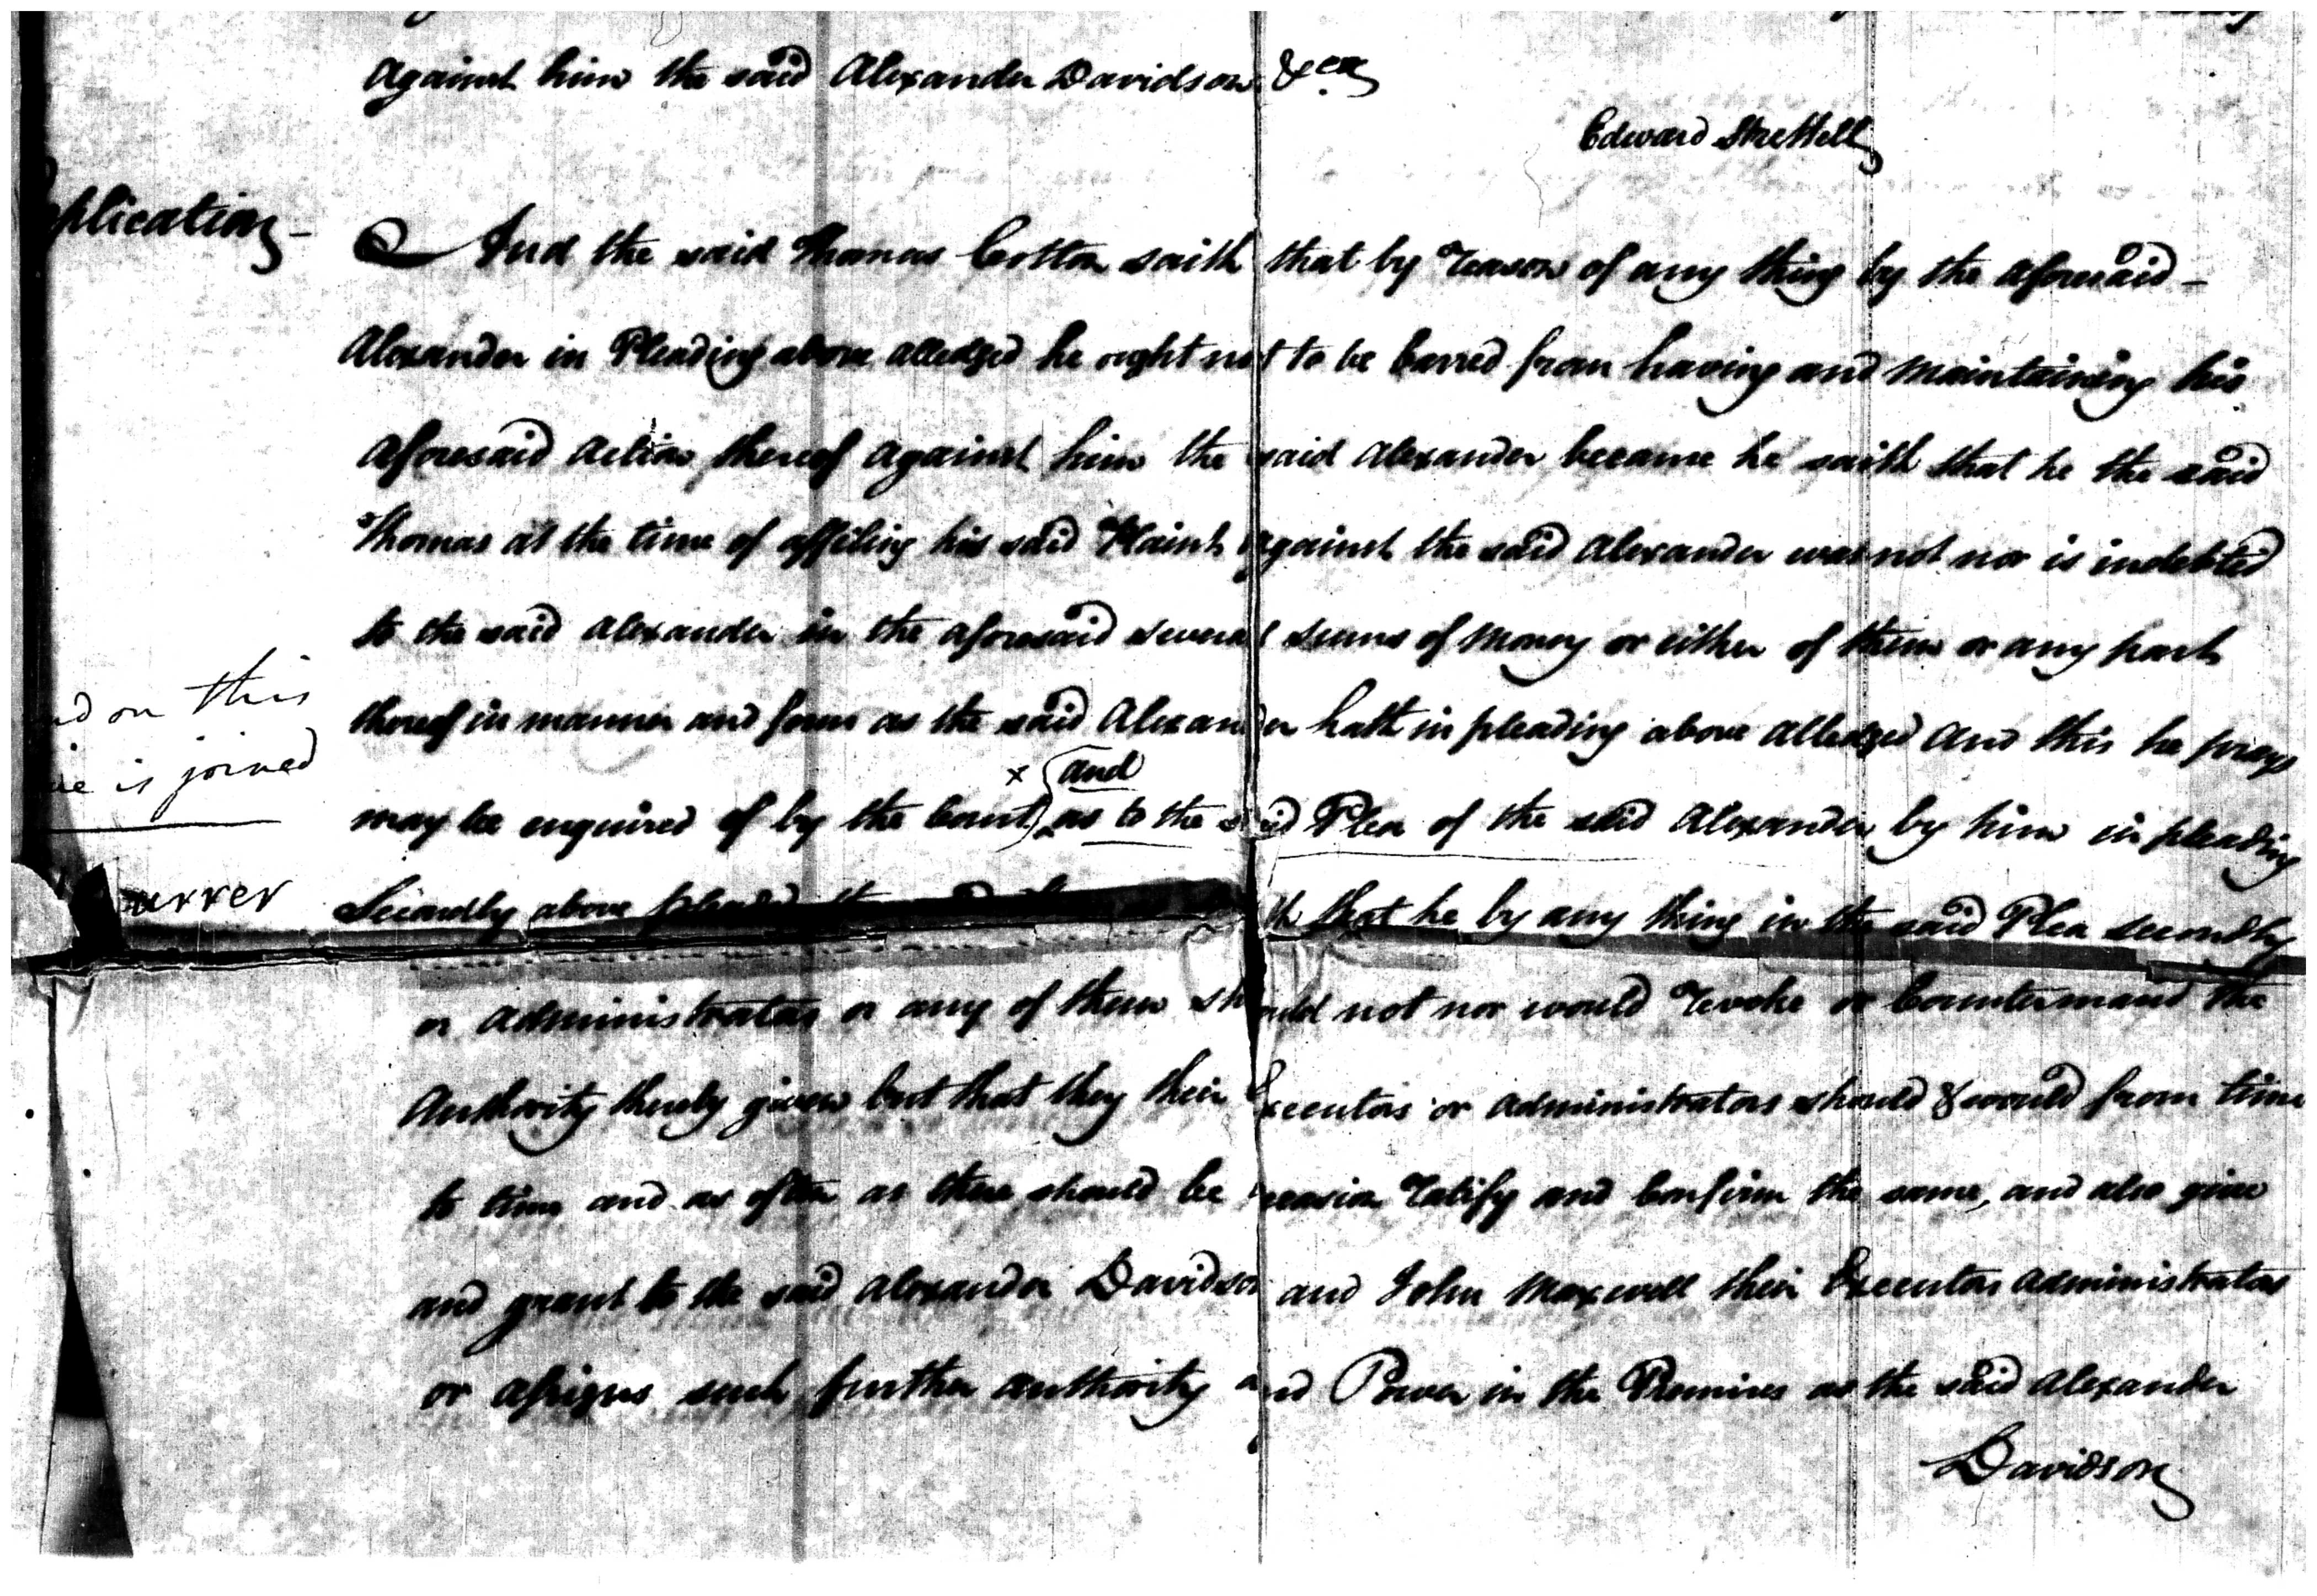 against him the said Alexander Davidson &ca
Edward Strettell
plication –
And the said Thomas Cotton saith that by reason of any thing by the aforesaid –
Alexander in Pleading above alledged he ought not to be barred from having and maintaining his
aforesaid Action thereof against him the said Alexander because he saith that he the said
Thomas at the time of affiling his said Plaint against the said Alexander was not nor is indebted
to the said Alexander in the aforesaid several sums of Money or either of them or any part
nd on this
thereof in manner and form as the said Alexander hath in pleading above alledged And this he prays
ue is joined
x (and
may be enquired of by the Court) as to the said Plea of the said Alexander by him in pleading
urrer
Secondly above that he by any thing in the said Plea secondly
or administrators or any of them should not nor would revoke or Countermand the
Authority thereby given but that they their Executors or administrators should & would from time
to time and as often as there should be occasion ratify and Confirm the same, and also give
and grant to the said Alexander Davidson and John Maxwell their Executors Administrators
or assigns such further authority and Power in the Premises as the said Alexander
Davidson